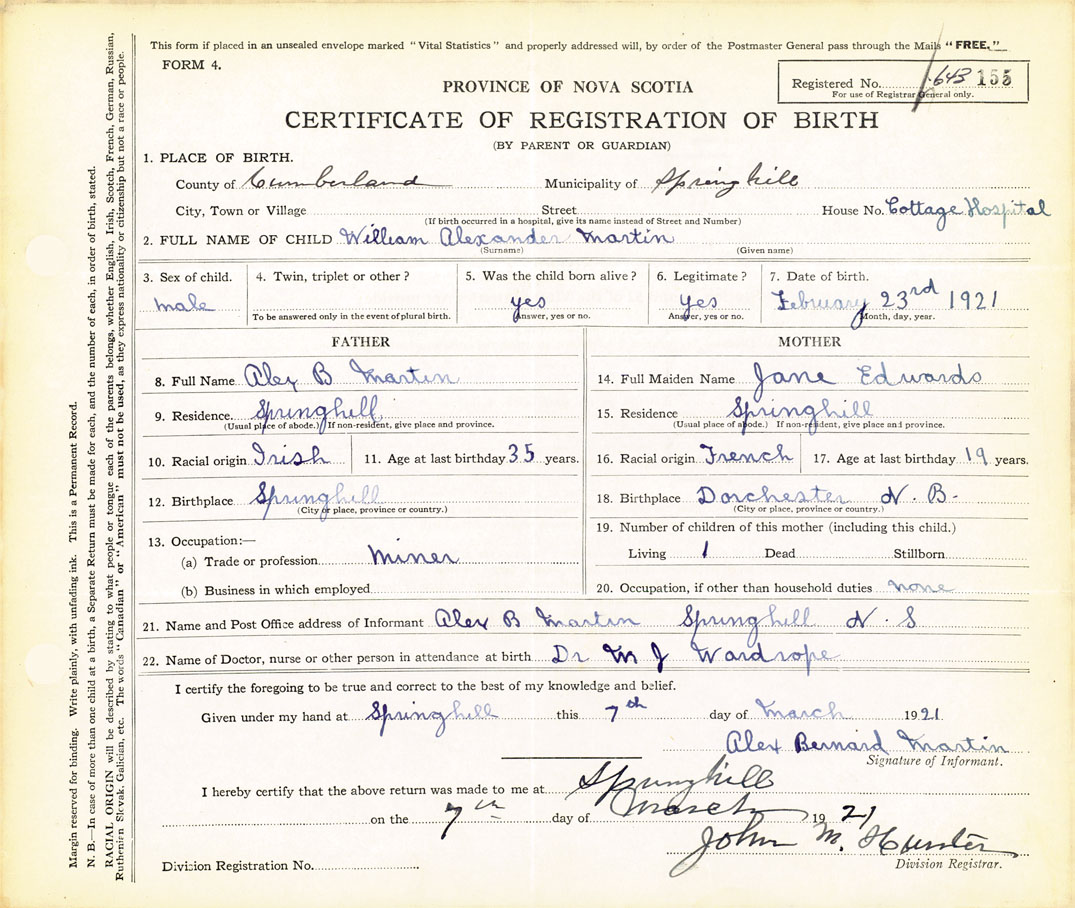 This form if placed in an unsealed envelope marked "Vital Statistics" and properly addressed will, by order of the Postmaster General pass through the Mails "FREE."
FORM 4.
Registered No. 643 155
For use of Registrar General only.
PROVINCE OF NOVA SCOTIA
CERTIFICATE OF REGISTRATION OF BIRTH
(BY PARENT OR GUARDIAN)
1. PLACE OF BIRTH.
County of Cumberland Municipality of Springhill
City, Town or Village Street House No. Cottage Hospital
(If birth occurred in a hospital, give its name instead of Street and Number)
2. FULL NAME OF CHILD William Alexander Martin
(Surname) (Given name)
3. Sex of child. 4. Twin, triplet or other? 5. Was the child born alive? 6. Legitimate? 7. Date of birth.
male yes yes February 23rd 1921
To be answered only in the event of plural birth. Answer, yes or no. Answer, yes or no. Month, day, year.
FATHER MOTHER
8. Full Name Alex B Martin 14. Full Maiden Name Jane Edwards
9. Residence Springhill 15. Residence Springhill
(Usual place of abode.) If non-resident, give place and province. (Usual place of abode.) If non-resident, give place and province.
10. Racial origin Irish 11. Age at last birthday 35 years. 16. Racial origin French 17. Age at last birthday 19 years.
12. Birthplace Springhill 18. Birthplace Dorchester N. B.
(City or place, province or country.) (City or place, province or country.)
13. Occupation:— 19. Number of children of this mother (including this child.)
(a) Trade or profession Miner Living 1 Dead Stillborn
(b) Business in which employed 20. Occupation, if other than household duties none
21. Name and Post Office address of Informant Alex B Martin Springhill N. S
22. Name of Doctor, nurse or other person in attendance at birth Dr M J Wardrope
I certify the foregoing to be true and correct to the best of my knowledge and belief.
Given under my hand at Springhill this 7th day of March 1921
Alex Bernard Martin
Signature of Informant.
I hereby certify that the above return was made to me at Springhill
on the 7th day of March 19 21
John M. Hunter
Division Registrar.
Division Registration No.
Margin reserved for binding. Write plainly, with unfading ink. This is a Permanent Record.
N. B.—In case of more than one child at a birth, a Separate Return must be made for each, and the number of each, in order of birth, stated.
RACIAL ORIGIN will be described by stating to what people or tongue each of the parents belongs, whether English, Irish, Scotch, French, German, Russian,
Ruthenian Slovak, Galician, etc. The words "Canadian" or "American" must not be used, as they express nationality or citizenship but not a race or people.